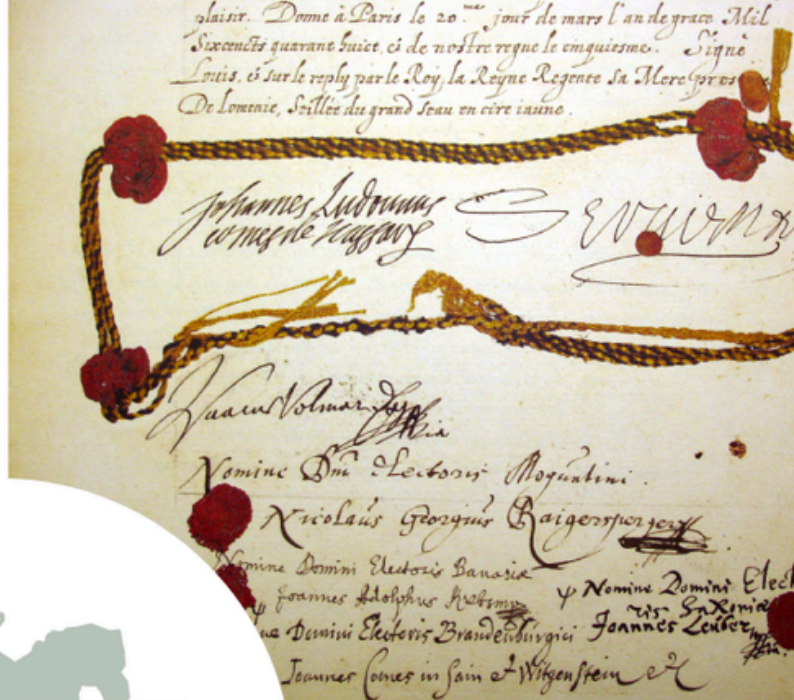 plaisir. Donné à Paris le 20.me jour de mars l'an de grace Mil
Sixcents quarant huict, & de nostre regne le cinquiesme. Signé
Louis, & sur le reply par le Roy, la Reyne Regente sa Mere
De Lomenie, Seillée du grand seau en cire iaune.
Johannes Ludovicus
comes de Nassau
Servien
Isaacus Volmar
Nomine Dni Electoris Moguntini.
Nicolaus Georgius Raigersperger
Nomine Domini Electoris Bavariæ
Joannes Adolphus
Nomine Domini Elect
ris Saxoniæ
Joannes Leuber
Domini Electoris Brandenburgici
Joannes Comes in Sain et Witgenstein